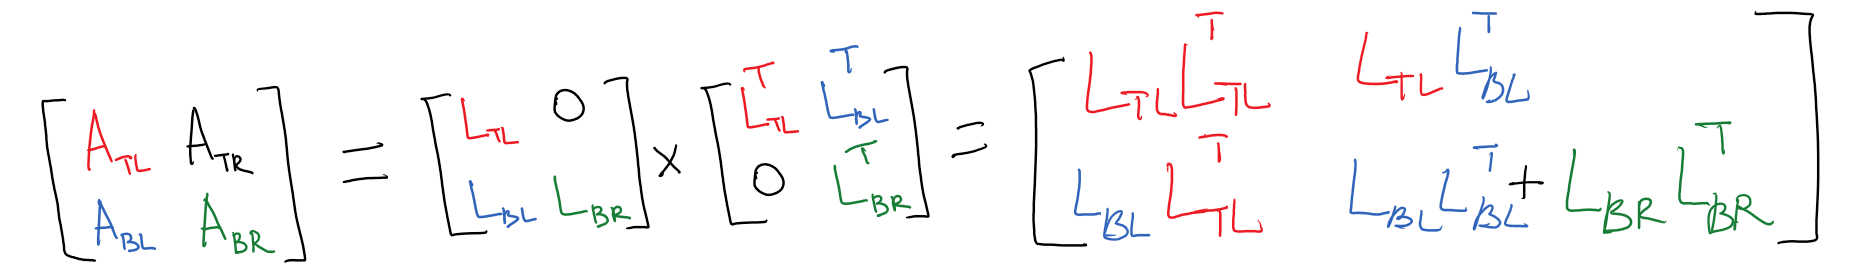 [A_TL A_TR; A_BL A_BR] = [L_TL 0; L_BL L_BR] × [L_TL^T L_BL^T; 0 L_BR^T] = [L_TL L_TL^T L_TL L_BL^T; L_BL L_TL^T L_BL L_BL^T + L_BR L_BR^T]